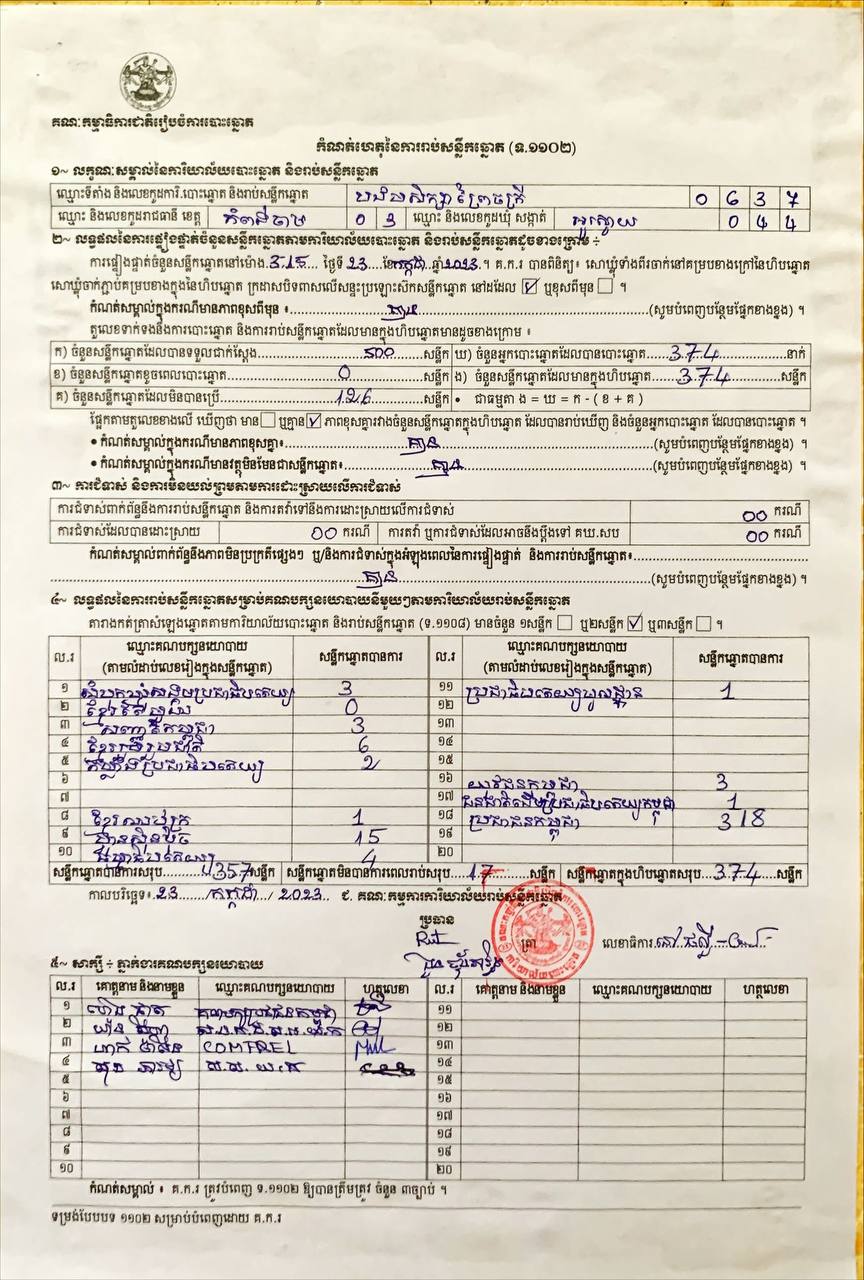 គណៈកម្មាធិការជាតិរៀបចំការបោះឆ្នោត
កំណត់ហេតុនៃការរាប់សន្លឹកឆ្នោត (ទ.១១០២)
១~ លក្ខណៈសម្គាល់នៃការិយាល័យបោះឆ្នោត និងរាប់សន្លឹកឆ្នោត
ឈ្មោះទីតាំង និងលេខកូដការិ.បោះឆ្នោត និងរាប់សន្លឹកឆ្នោត 0 6 3 7
ឈ្មោះ និងលេខកូដរាជធានី ខេត្ត កំពង់ចាម 0 3 ឈ្មោះ និងលេខកូដឃុំ សង្កាត់ អូរស្វាយ 0 4 4
២~ លទ្ធផលនៃការផ្ទៀងផ្ទាត់ចំនួនសន្លឹកឆ្នោតតាមការិយាល័យបោះឆ្នោត និងរាប់សន្លឹកឆ្នោតដូចខាងក្រោម ÷
ការផ្ទៀងផ្ទាត់ចំនួនសន្លឹកឆ្នោតនៅម៉ោង.3:15.... ថ្ងៃទី 23 ....ខែកក្កដា ឆ្នាំ2023.។ គ.ក.រ បានពិនិត្យ៖ សោឃ្លុំទាំងពីរចាក់នៅគម្របខាងក្រៅនៃហិបឆ្នោត
សោឃ្លុំចាក់ភ្ជាប់គម្របខាងក្នុងនៃហិបឆ្នោត ក្រដាសបិទពាសលើសន្ទះប្រឡោះសិកសន្លឹកឆ្នោត នៅដដែល ☑ ឬខុសពីមុន ☐ ។
កំណត់សម្គាល់ក្នុងករណីមានភាពខុសពីមុន ៖ គ្មាន (សូមបំពេញបន្ថែមផ្នែកខាងខ្នង) ។
តួលេខទាក់ទងនឹងការបោះឆ្នោត និងការរាប់សន្លឹកឆ្នោតដែលមានក្នុងហិបឆ្នោតមានដូចខាងក្រោម ៖
ក) ចំនួនសន្លឹកឆ្នោតដែលបានទទួលជាក់ស្តែង ៥០០ សន្លឹក ឃ) ចំនួនអ្នកបោះឆ្នោតដែលបានបោះឆ្នោត 374 នាក់
ខ) ចំនួនសន្លឹកឆ្នោតខូចពេលបោះឆ្នោត 0 សន្លឹក ង) ចំនួនសន្លឹកឆ្នោតដែលមានក្នុងហិបឆ្នោត 374 សន្លឹក
គ) ចំនួនសន្លឹកឆ្នោតដែលមិនបានប្រើ 126 សន្លឹក • ជាធម្មតា ង = ឃ = ក - ( ខ + គ )
ផ្អែកតាមតួលេខខាងលើ ឃើញថា មាន☐ ឬគ្មាន☑ ភាពខុសគ្នារវាងចំនួនសន្លឹកឆ្នោតក្នុងហិបឆ្នោត ដែលបានរាប់ឃើញ និងចំនួនអ្នកបោះឆ្នោត ដែលបានបោះឆ្នោត ។
• កំណត់សម្គាល់ក្នុងករណីមានភាពខុសគ្នា៖ គ្មាន (សូមបំពេញបន្ថែមផ្នែកខាងខ្នង) ។
• កំណត់សម្គាល់ក្នុងករណីមានវត្ថុមិនមែនជាសន្លឹកឆ្នោត៖ គ្មាន (សូមបំពេញបន្ថែមផ្នែកខាងខ្នង) ។
៣~ ការជំទាស់ និងការមិនយល់ព្រមតាមការដោះស្រាយលើការជំទាស់
ការជំទាស់ពាក់ព័ន្ធនឹងការរាប់សន្លឹកឆ្នោត និងការតវ៉ាទៅនឹងការដោះស្រាយលើការជំទាស់ 00 ករណី
ការជំទាស់ដែលបានដោះស្រាយ 00 ករណី ការតវ៉ា ឬការជំទាស់ដែលអាចនឹងប្តឹងទៅ គឃ.សប 00 ករណី
កំណត់សម្គាល់ពាក់ព័ន្ធនឹងភាពមិនប្រក្រតីផ្សេងៗ ឬ/និងការជំទាស់ក្នុងអំឡុងពេលនៃការផ្ទៀងផ្ទាត់ និងការរាប់សន្លឹកឆ្នោត៖
គ្មាន (សូមបំពេញបន្ថែមផ្នែកខាងខ្នង) ។
៤~ លទ្ធផលនៃការរាប់សន្លឹកឆ្នោតសម្រាប់គណបក្សនយោបាយនីមួយៗតាមការិយាល័យរាប់សន្លឹកឆ្នោត
តារាងកត់ត្រាសំឡេងឆ្នោតតាមការិយាល័យបោះឆ្នោត និងរាប់សន្លឹកឆ្នោត (ទ.១១០៨) មានចំនួន ១សន្លឹក ☐ ឬ២សន្លឹក ☑ ឬ៣សន្លឹក ☐ ។
ល.រ ឈ្មោះគណបក្សនយោបាយ (តាមលំដាប់លេខរៀងក្នុងសន្លឹកឆ្នោត) សន្លឹកឆ្នោតបានការ ល.រ ឈ្មោះគណបក្សនយោបាយ (តាមលំដាប់លេខរៀងក្នុងសន្លឹកឆ្នោត) សន្លឹកឆ្នោតបានការ
១ សំបុកឃ្មុំសង្គមប្រជាធិបតេយ្យ 3 ១១ ប្រជាធិបតេយ្យមូលដ្ឋាន 1
២ ខ្មែរតែមួយ 0 ១២
៣ សញ្ជាតិកម្ពុជា 3 ១៣
៤ ខ្មែររួបរួមជាតិ 6 ១៤
៥ កម្លាំងប្រជាធិបតេយ្យ 2 ១៥
៦ ១៦ យុវជនកម្ពុជា 3
៧ ១៧ ជនជាតិដើមប្រជាធិបតេយ្យកម្ពុជា 1
៨ ខ្មែរឈប់ក្រ 1 ១៨ ប្រជាជនកម្ពុជា 318
៩ ហ្វ៊ុនស៊ិនប៉ិច 15 ១៩
១០ ធម្មាធិបតេយ្យ 4 ២០
សន្លឹកឆ្នោតបានការសរុប 357 សន្លឹក សន្លឹកឆ្នោតមិនបានការពេលរាប់សរុប 17 សន្លឹក សន្លឹកឆ្នោតក្នុងហិបសរុប 374 សន្លឹក
កាលបរិច្ឆេទ៖ 23 / កក្កដា / 2023 ជ. គណៈកម្មការការិយាល័យរាប់សន្លឹកឆ្នោត
ប្រធាន
ត្រា លេខាធិការ
៥~ សាក្សី ÷ ភ្នាក់ងារគណបក្សនយោបាយ
ល.រ គោត្តនាម និងនាមខ្លួន ឈ្មោះគណបក្សនយោបាយ ហត្ថលេខា ល.រ គោត្តនាម និងនាមខ្លួន ឈ្មោះគណបក្សនយោបាយ ហត្ថលេខា
១ គណបក្សប្រជាជនកម្ពុជា ១១
២ ១២
៣ COMFREL ១៣
៤ ១៤
៥ ១៥
៦ ១៦
៧ ១៧
៨ ១៨
៩ ១៩
១០ ២០
កំណត់សម្គាល់ ៖ គ.ក.រ ត្រូវបំពេញ ទ.១១០២ ឱ្យបានត្រឹមត្រូវ ចំនួន ៣ច្បាប់ ។
ទម្រង់បែបបទ ១១០២ សម្រាប់បំពេញដោយ គ.ក.រ